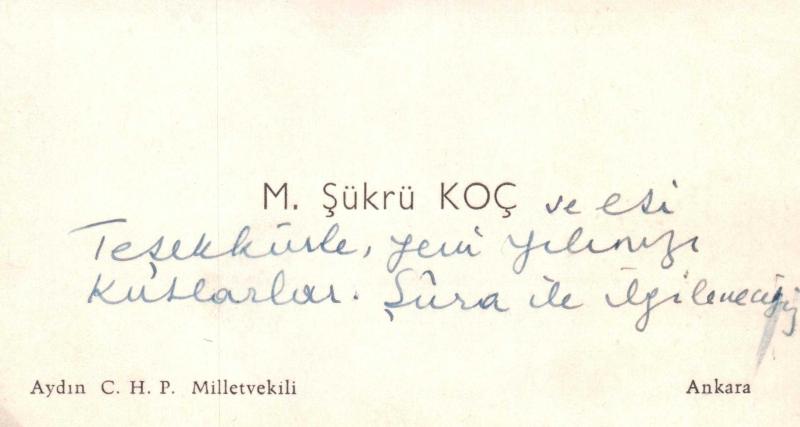 M. Şükrü KOÇ ve eşi
Teşekkürle, yeni yılınızı
Kutlarlar. Şûra ile ilgileneceğiz
Aydın C. H. P. Milletvekili Ankara